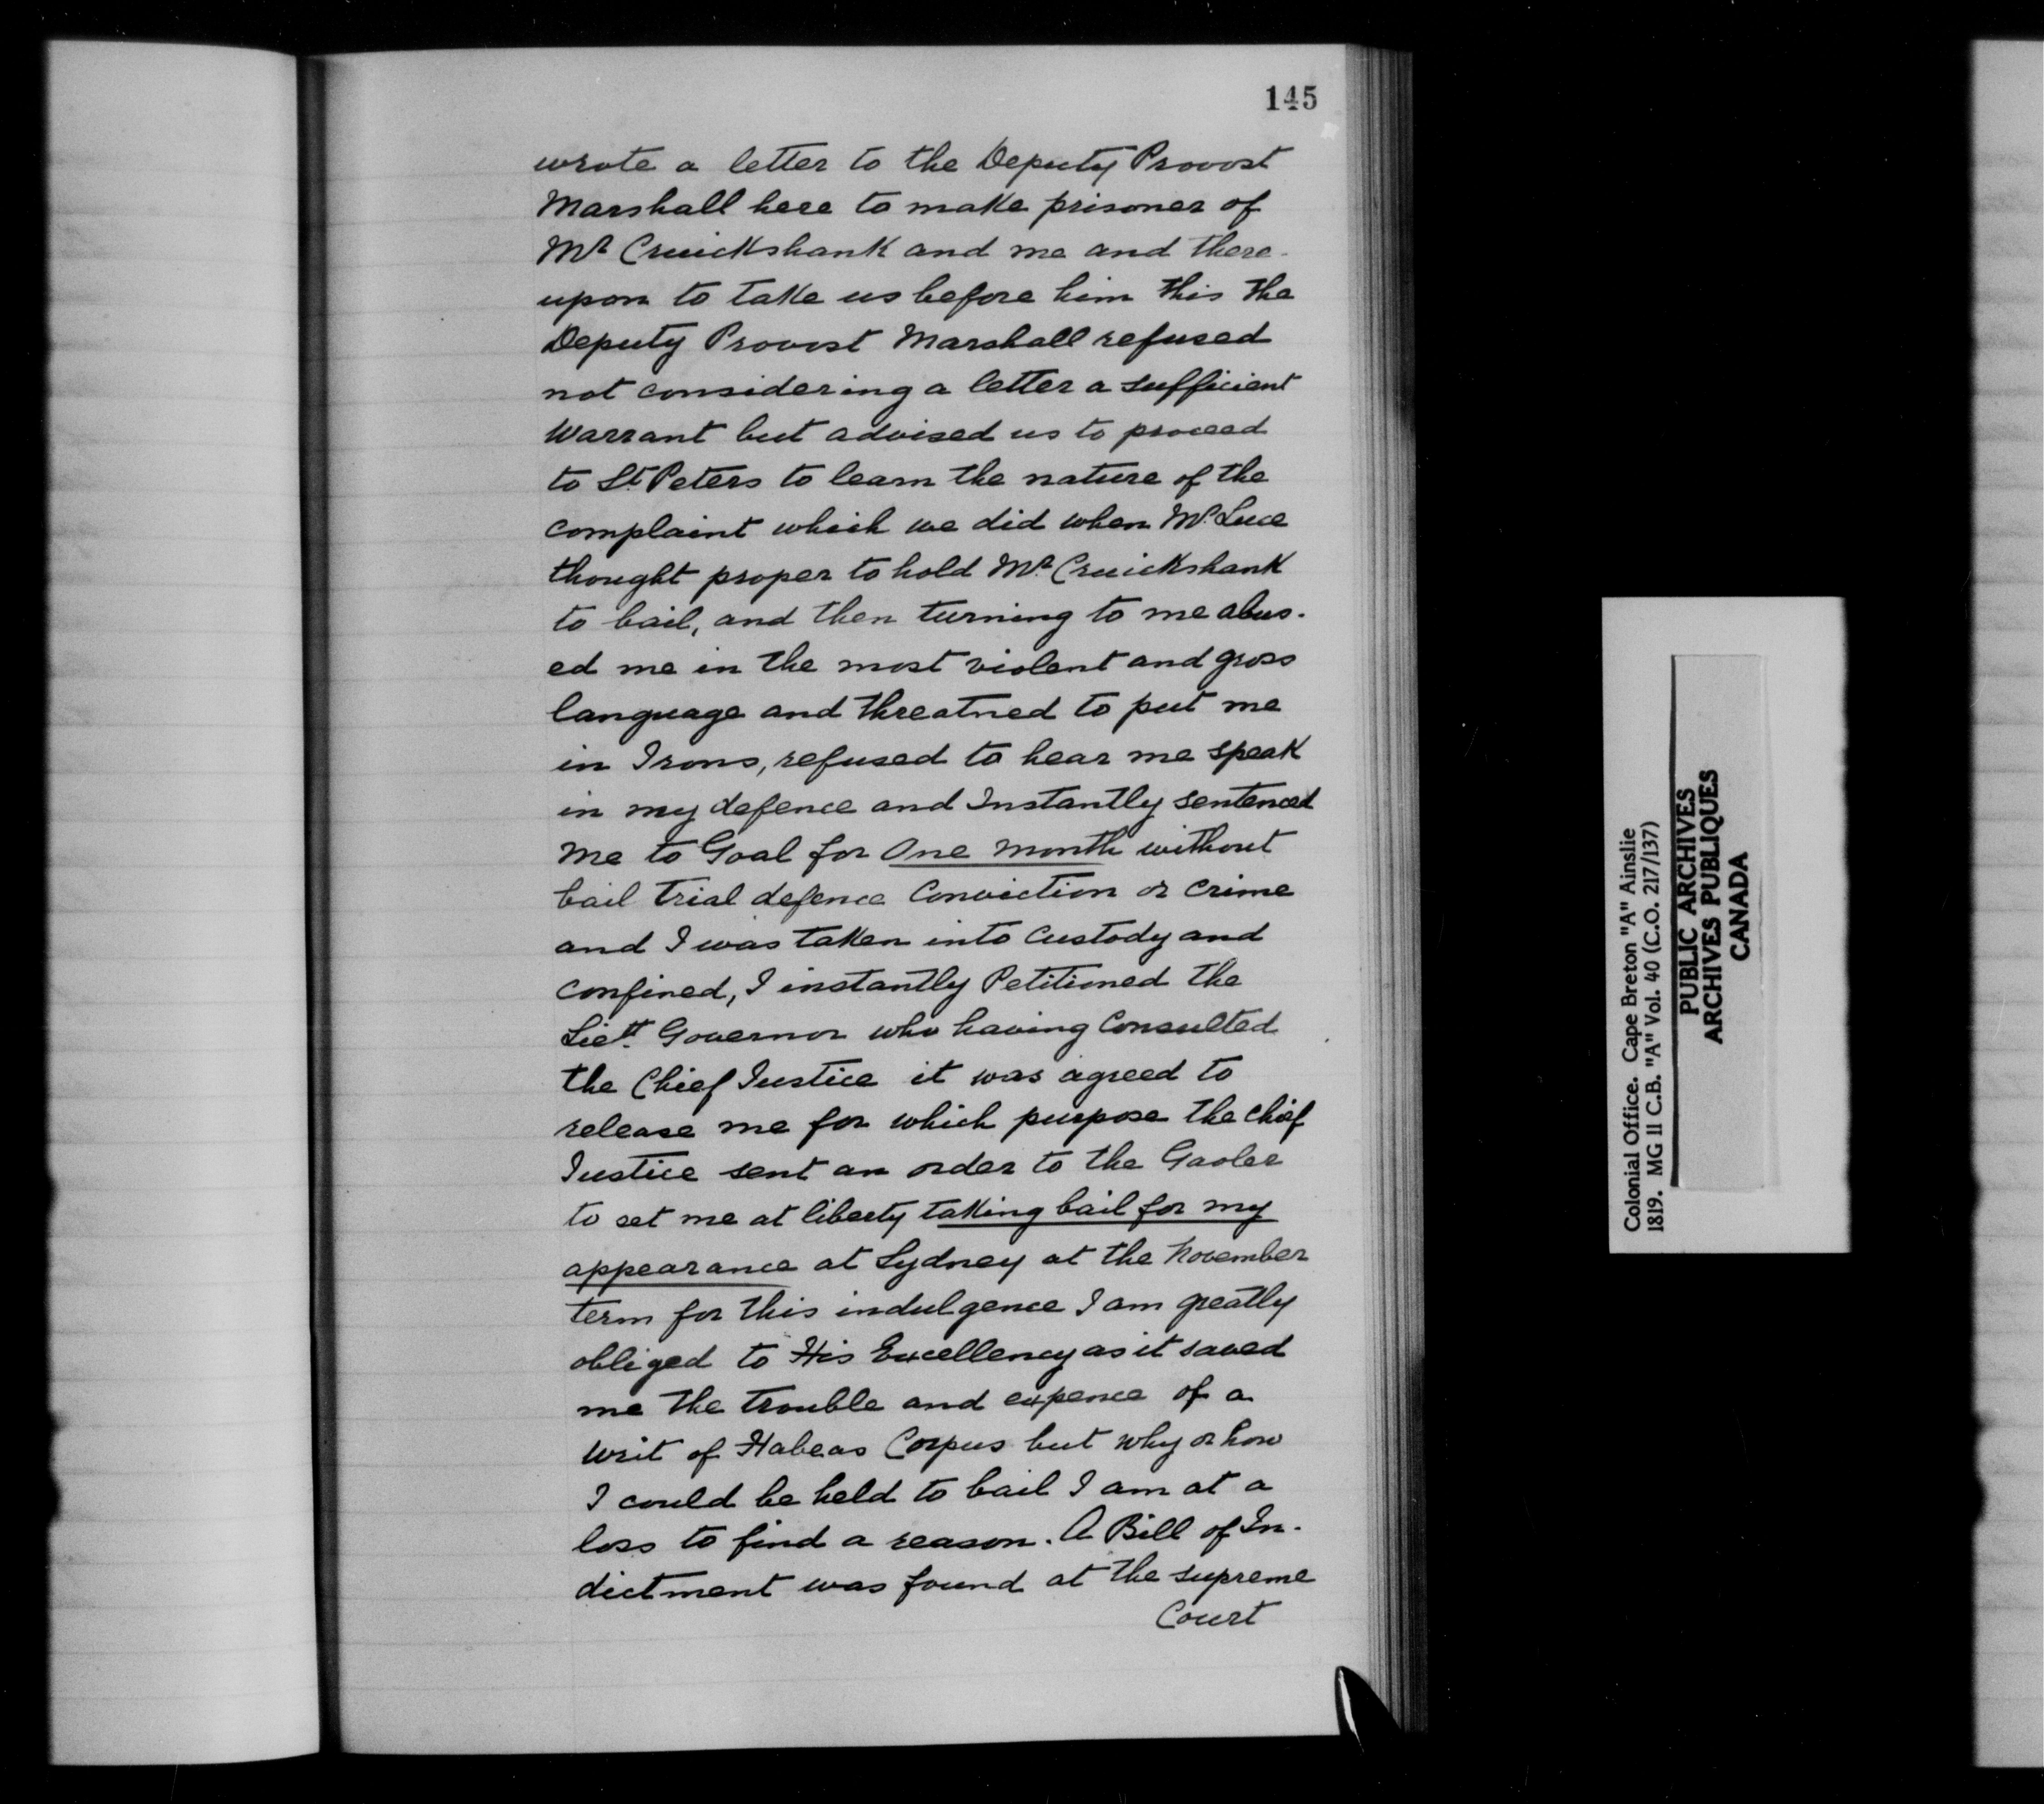 145
wrote a letter to the Deputy Provost
Marshall here to make prisoner of
Mr Cruickshank and me and there-
upon to take us before him this the
Deputy Provost Marshall refused
not considering a letter a sufficient
Warrant but advised us to proceed
to St. Peters to learn the nature of the
complaint which we did when Mr. Luce
thought proper to hold Mr. Cruickshank
to bail, and then turning to me abus-
ed me in the most violent and gross
language and threatned to put me
in Irons, refused to hear me speak
in my defence and Instantly sentenced
me to Goal for One month without
bail trial defence Conviction or Crime
and I was taken into Custody and
confined, I instantly Petitioned the
Liett. Governor who having Consulted
the Chief Justice it was agreed to
release me for which purpose the Chief
Justice sent an order to the Gaoler
to set me at liberty taking bail for my
appearance at Sydney at the November
term for this indulgence I am greatly
obliged to His Excellency as it saved
me the trouble and expence of a
Writ of Habeas Corpus but why or how
I could be held to bail I am at a
loss to find a reason. A Bill of In-
dictment was found at the supreme
Court
Colonial Office. Cape Breton "A" Ainslie
1819. MG 11 C.B. "A" Vol. 40 (C.O. 217/137)
PUBLIC ARCHIVES
ARCHIVES PUBLIQUES
CANADA